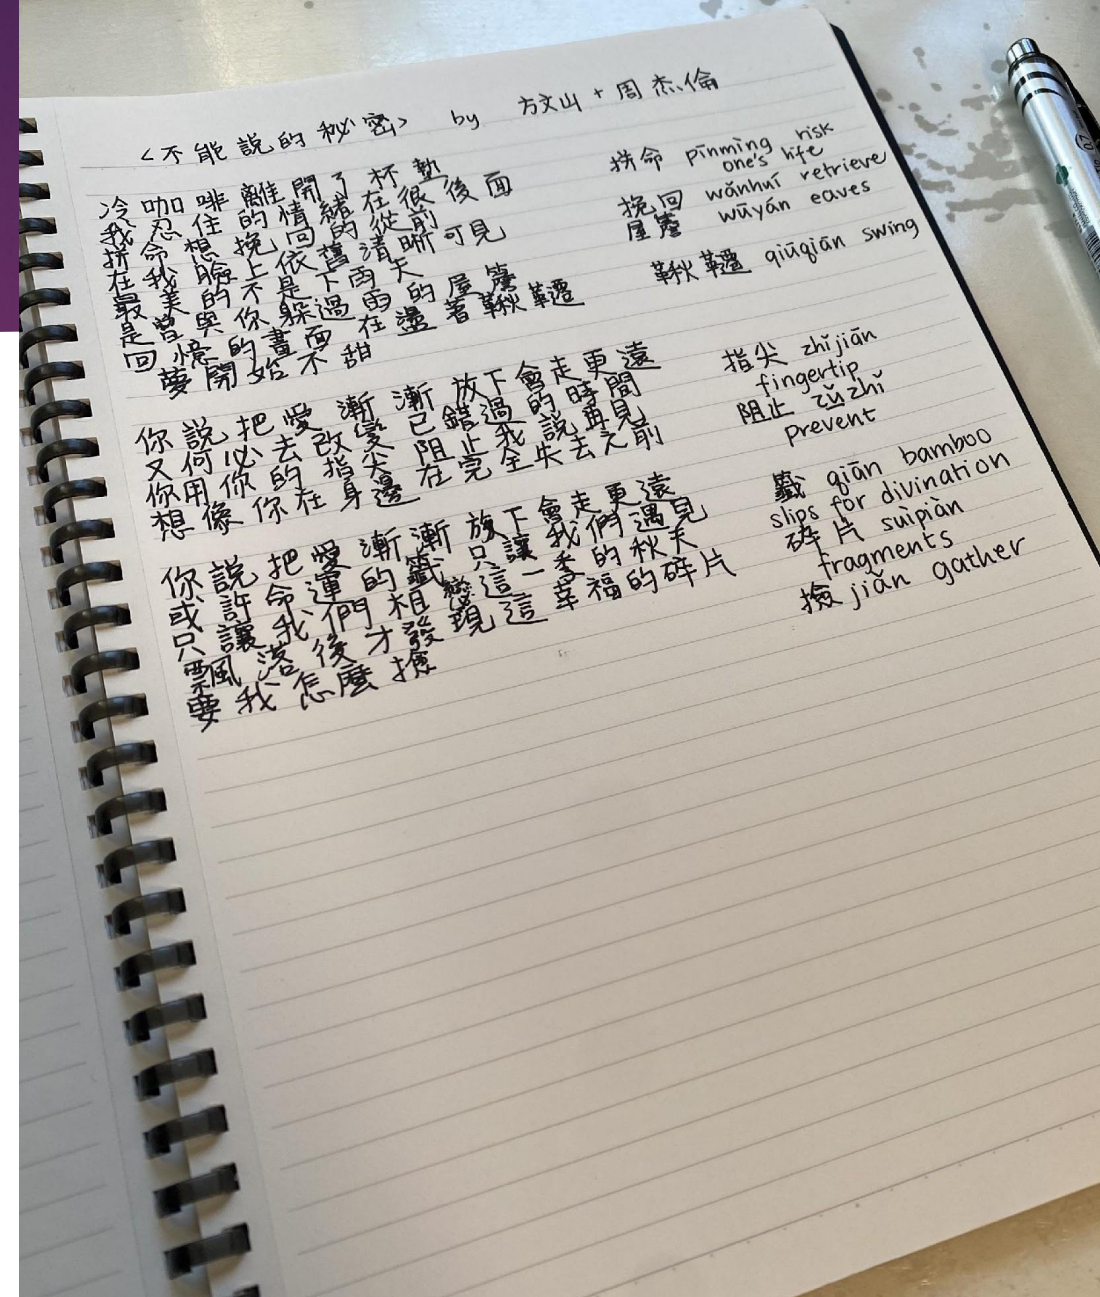 <不能說的秘密> by 方文山 + 周杰倫
冷咖啡離開了杯墊
我忍住的情緒在很後面
拼命想挽回的從前
在我臉上依舊清晰可見
最美的不是下雨天
是曾與你躲過雨的屋簷
回憶的畫面 在盪著鞦韆
夢開始不甜
你說把愛漸漸 放下會走更遠
又何必去改變 已錯過的時間
你用你的指尖 阻止我說再見
想像你在身邊 在完全失去之前
你說把愛漸漸 放下會走更遠
或許命運的籤 只讓我們遇見
只讓我們相戀 這一季的秋天
飄落後才發現 這幸福的碎片
要我怎麼撿
拼命 pīnmìng risk
one's life
挽回 wǎnhuí retrieve
屋簷 wūyán eaves
鞦韆 qiūqiān swing
指尖 zhǐjiān
fingertip
阻止 zǔzhǐ
prevent
籤 qiān bamboo
slips for divination
碎片 suìpiàn
fragments
撿 jiǎn gather